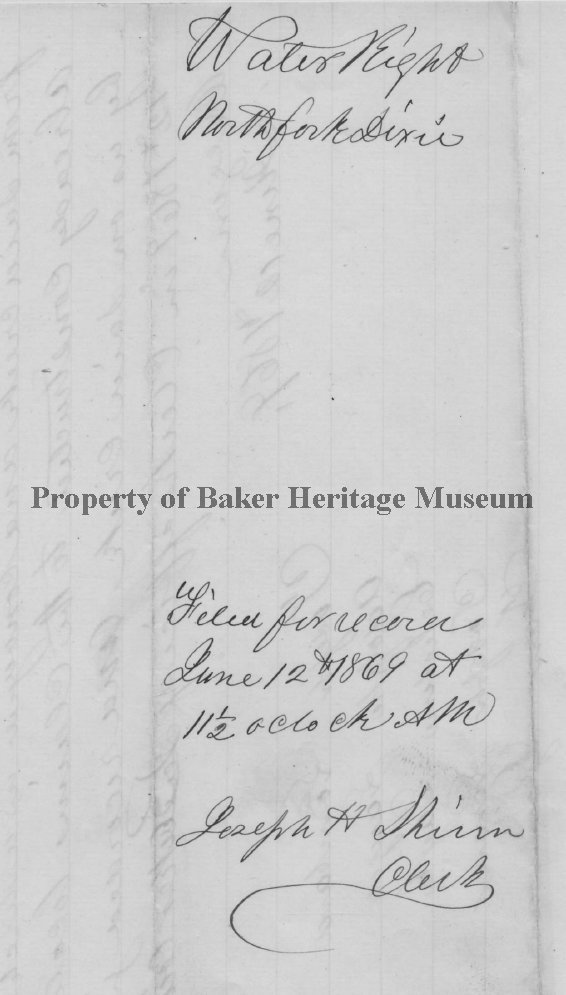 Water Right
North fork Dixie
Property of Baker Heritage Museum
Filed for record
June 12th 1869 at
11½ oclock AM
Joseph H Shinn
Clerk